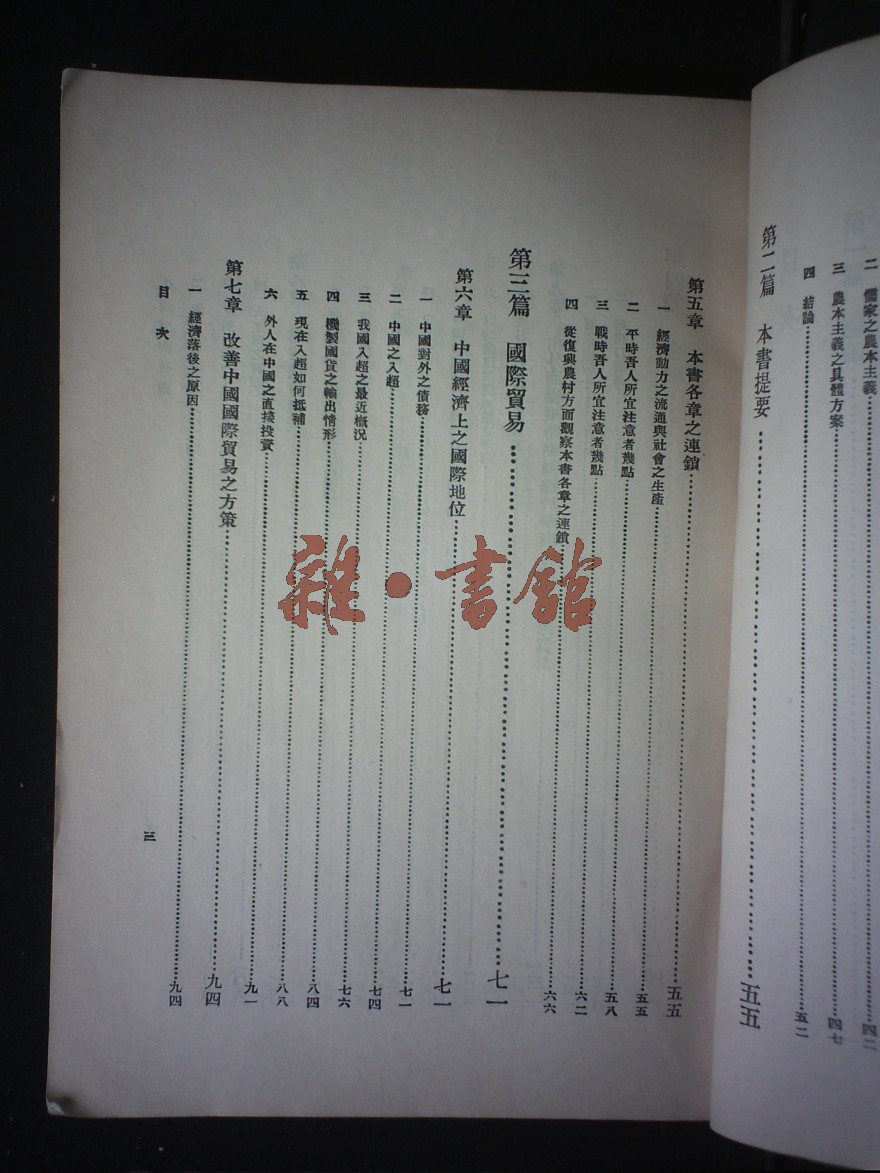 二 儒家之農本主義……四二
三 農本主義之具體方案……四七
四 結論……五二
第二篇 本書提要……五五
第五章 本書各章之連鎖……五五
一 經濟動力之流通與社會之生產……五五
二 平時吾人所宜注意者幾點……五八
三 戰時吾人所宜注意者幾點……六二
四 從復興農村方面觀察本書各章之連鎖……六六
第三篇 國際貿易……七一
第六章 中國經濟上之國際地位……七一
一 中國對外之債務……七一
二 中國之入超……七四
三 我國入超之最近概況……七六
四 機製國貨之輸出情形……八四
五 現在入超如何抵補……八八
六 外人在中國之直接投資……九一
第七章 改善中國國際貿易之方策……九四
一 經濟落後之原因……九四
目次
三
雜·書館